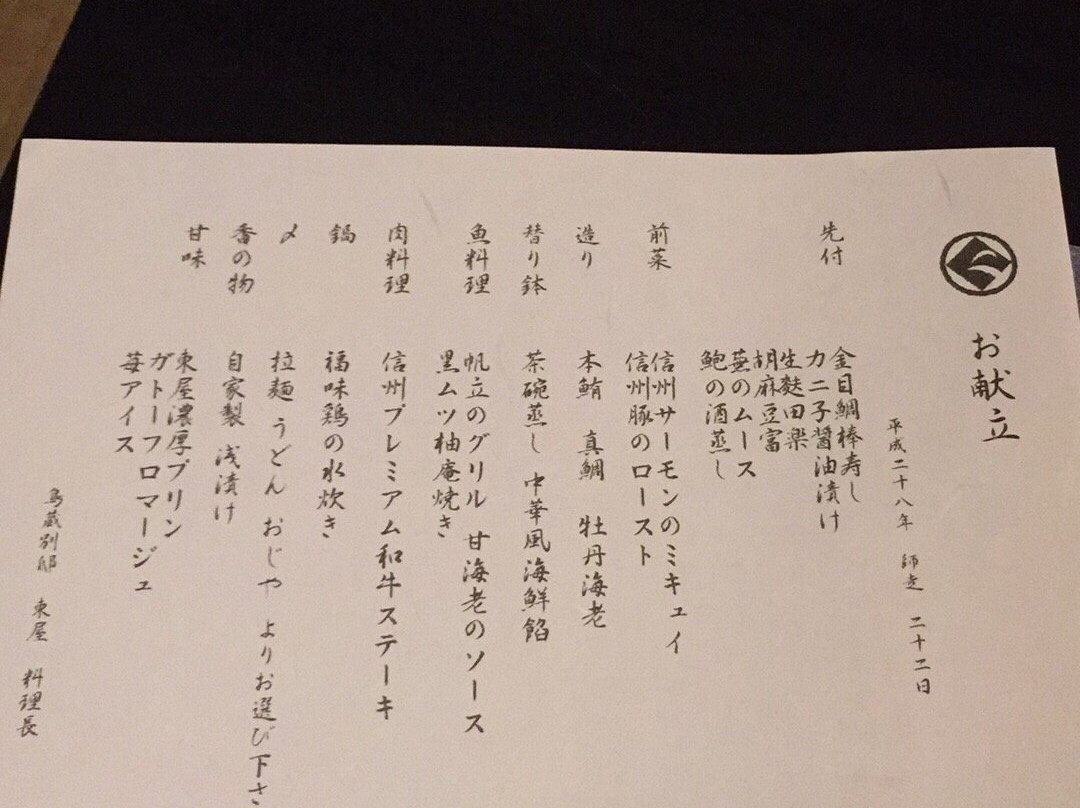 お献立
平成二十八年 師走 二十二日
先付
金目鯛棒寿し
カニ子醤油漬け
生麩田楽
胡麻豆富
蕪のムース
鮑の酒蒸し
前菜
信州サーモンのミキュイ
信州豚のロースト
造り
本鮪 真鯛 牡丹海老
替り鉢
茶碗蒸し 中華風海鮮餡
魚料理
帆立のグリル 甘海老のソース
黒ムツ柚庵焼き
肉料理
信州プレミアム和牛ステーキ
鍋
福味鶏の水炊き
〆
拉麺 うどん おじや よりお選び下さ
香の物
自家製 浅漬け
甘味
東屋濃厚プリン
ガトーフロマージュ
苺アイス
鳥蔵別邸 東屋 料理長